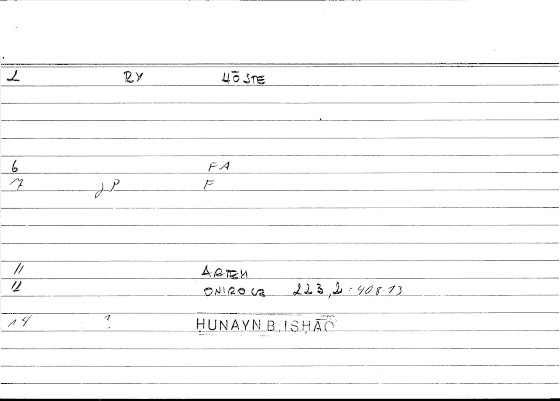 2 RY HŌSTE
6 FA
7 JP F
11 ARTEM
12 ONIROCR 223,2-408.13
14 ? HUNAYN B.ISHĀQ